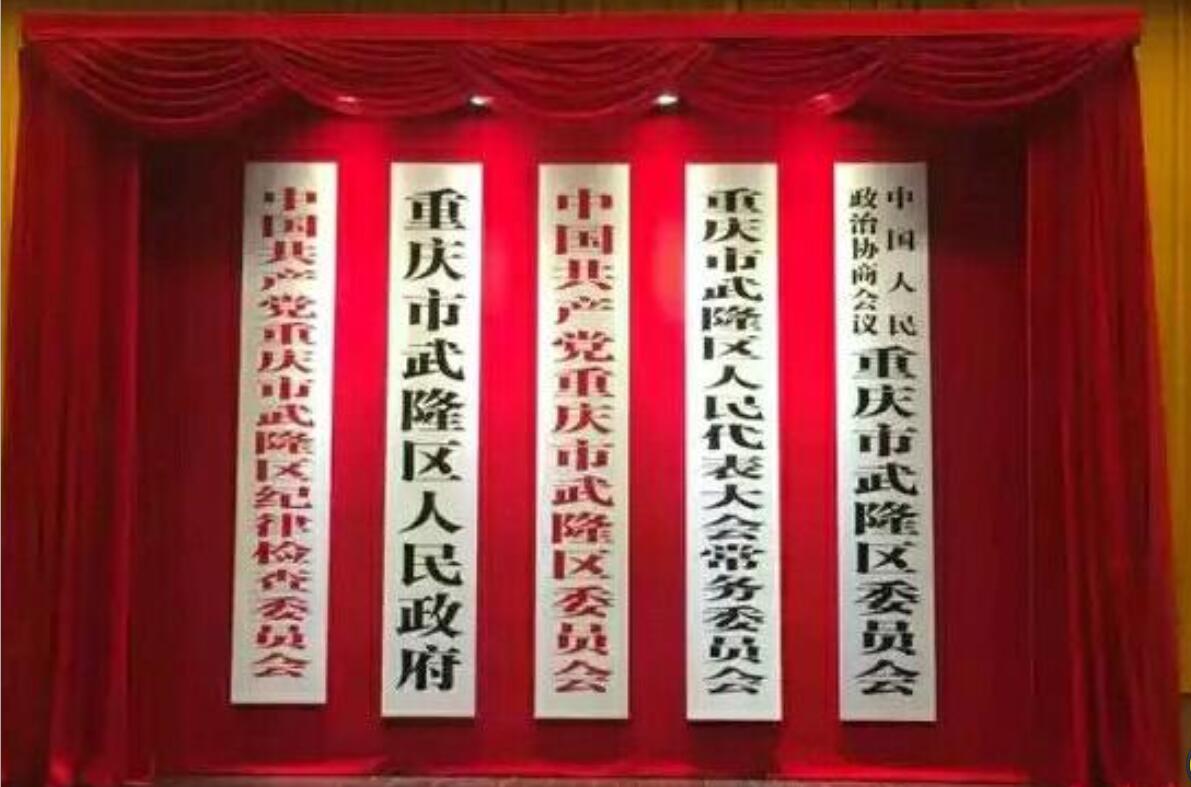 中国共产党重庆市武隆区纪律检查委员会
重庆市武隆区人民政府
中国共产党重庆市武隆区委员会
重庆市武隆区人民代表大会常务委员会
中国人民
政治协商会议
重庆市武隆区委员会